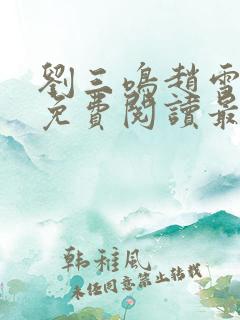 劉三鳴趙雪
免費閱讀最
韩稚風
未经同意禁止转载